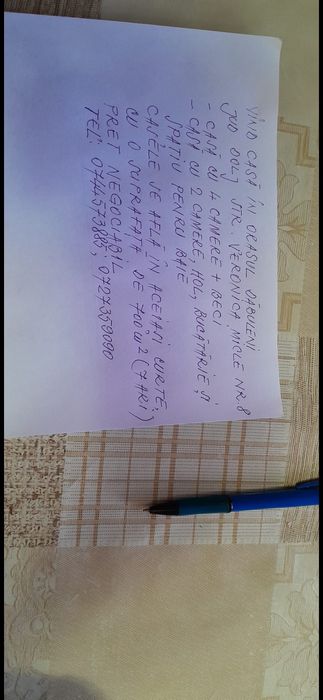 VIND CASĂ ÎN ORASUL DĂBULENI
JUD DOLJ STR. VERONICA MICLE NR. 8
- CASĂ CU 4 CAMERE + BECI
- CASĂ CU 2 CAMERE, HOL, BUCĂTĂRIE ȘI
SPAȚIU PENRU BAIE
CASELE SE AFLĂ ÎN ACEIAȘI CURTE,
CU O SUPRAFATĂ DE 700 m2 (7 ARI)
PRET NEGOCIABIL
TEL: 0744573885; 0727359090